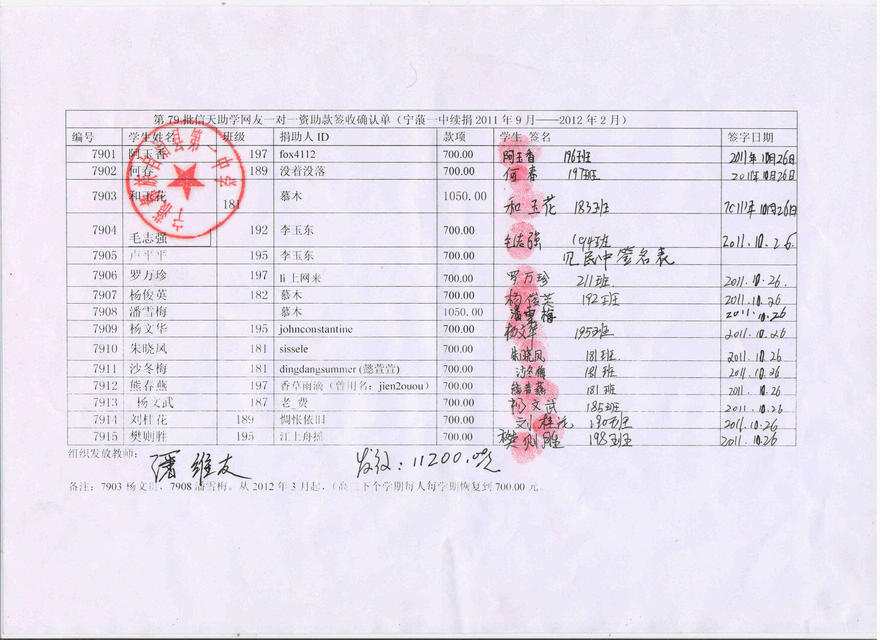 第79批信天助学网友一对一资助款签收确认单（宁蒗一中续捐2011年9月——2012年2月）
编号 学生姓名 班级 捐助人ID 款项 学生 签名 签字日期
7901 阿玉香 197 fox4112 700.00 阿玉香 196班 2011年10月26日
7902 何春 189 没着没落 700.00 何春 197班 2011年10月26日
7903 和玉花 181 慕木 1050.00 和玉花 183班 2011年10月26日
7904 毛志强 192 李玉东 700.00 毛志强 194班 2011.10.26
7905 卢平平 195 李玉东 700.00 见民中签名表
7906 罗万珍 197 li上网来 700.00 罗万珍 211班 2011.10.26.
7907 杨俊英 182 慕木 700.00 杨俊英 192班 2011.10.26
7908 潘雪梅 慕木 1050.00 潘雪梅 2011.10.26
7909 杨文华 195 johnconstantine 700.00 杨文华 195班 2011.10.26
7910 朱晓凤 181 sissele 700.00 朱晓凤 181班. 2011.10.26
7911 沙冬梅 181 dingdangsummer(懿萱萱) 700.00 沙冬梅 181班 2011.10.26
7912 熊春燕 197 香草雨滴（曾用名：jien2ouou） 700.00 熊春燕 181班 2011.10.26
7913 杨文武 187 老_费 700.00 杨文武 185班 2011.10.26
7914 刘桂花 189 惆怅依旧 700.00 刘桂花 190班 2011.10.26
7915 樊则胜 195 江上舟摇 700.00 樊则胜 198班 2011.10.26
组织发放教师： 潘维友 发放：11200.00元
备注：7903 杨文 7908潘雪梅。从2012年3月起，（高二下个学期每人每学期恢复到700.00元
宁蒗彝族自治县第一中学